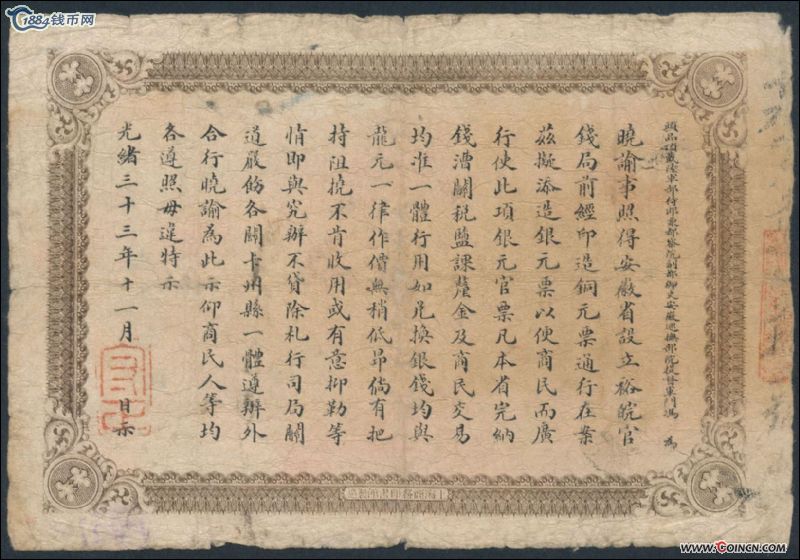 1884钱币网
頭品頂戴陸軍部侍郎兼都察院副都御史安徽巡撫部院提督軍門馮 為
曉諭事照得安徽省設立裕皖官
錢局前經印造銅元票通行在案
茲擬添造銀元票以便商民而廣
行使此項銀元官票凡本省完納
錢漕關稅鹽課釐金及商民交易
均准一體行用如兌換銀錢均與
龍元一律作價無稍低昂倘有把
持阻撓不肯收用或有意抑勒等
情即與究辦不貸除札行司局關
道嚴飭各關卡州縣一體遵辦外
合行曉諭為此示仰商民人等均
各遵照毋違特示
光緒三十三年十一月 日示
上海商務印書館製造
www.CoinCN.com